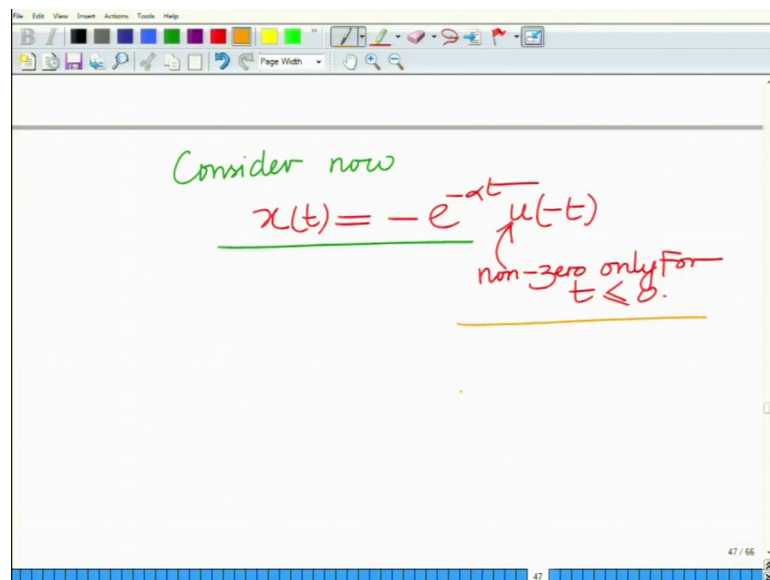 File Edit View Insert Actions Tools Help
B I
Page Width
Consider now
x(t) = - e^{-αt} u(-t)
non-zero only For
t ≤ 0.
47 / 66
47